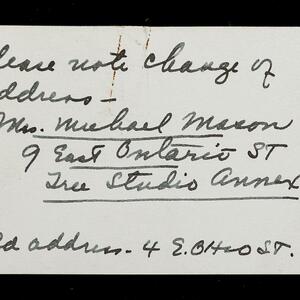 lease note change of
ddress -
Mrs. Michael Mason
9 East Ontario ST
Tree Studio Annex
ld address - 4 E. OHIO ST.